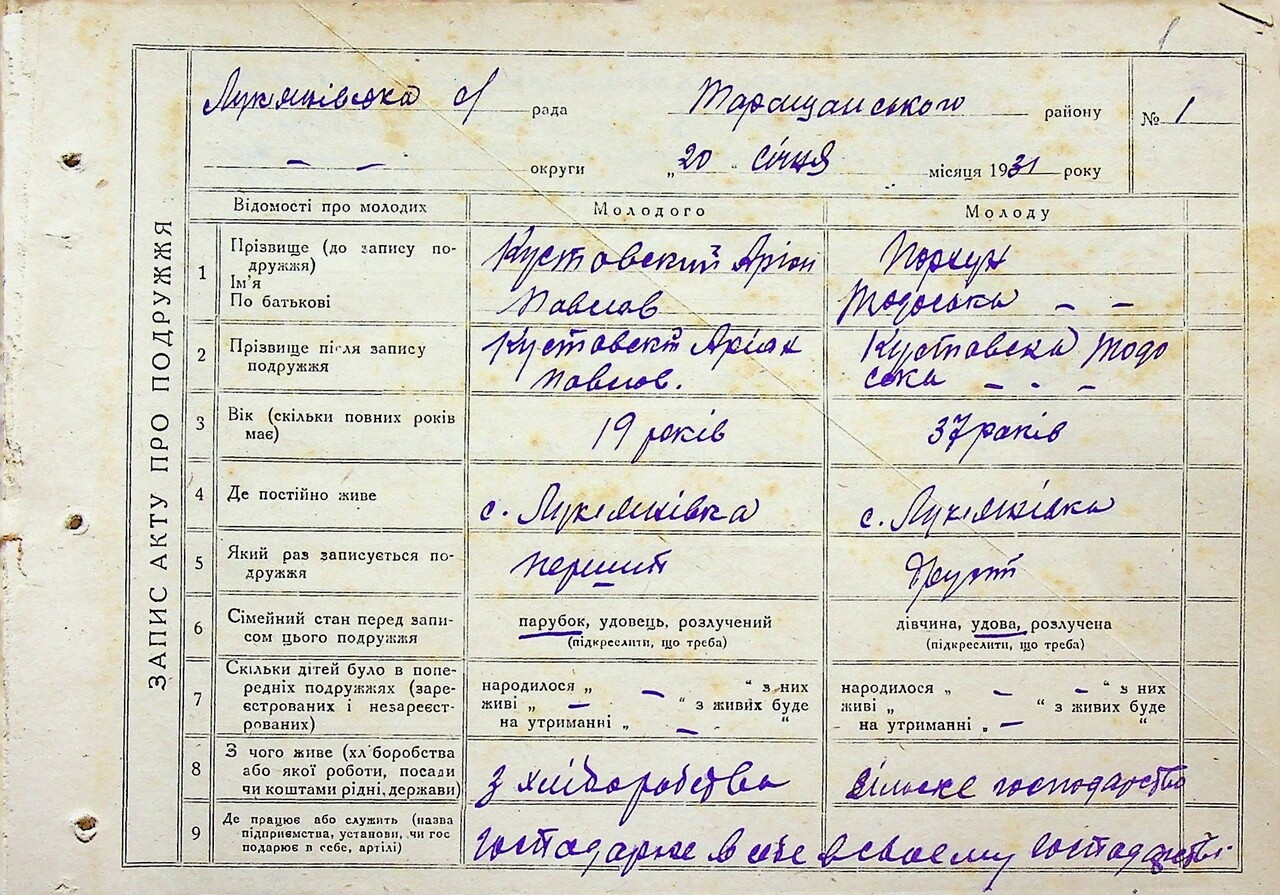 ЗАПИС АКТУ ПРО ПОДРУЖЖЯ
Лукянівська с/ рада Таращанського району № 1
— — округи „20“ січня місяця 1931 року
Відомості про молодих Молодого Молоду
1 Прізвище (до запису по-
дружжя)
Ім'я
По батькові
Кустовский
Павлов
Тодоська — —
2 Прізвище після запису
подружжя
Кустовский
павлов.
Кустовска Тодо
ска — - —
3 Вік (скільки повних років
має)
19 років
37 років
4 Де постійно живе
с. Лукянівка
с. Лукянівка
5 Який раз записується по-
дружжя
перший
другий
6 Сімейний стан перед запи-
сом цього подружжя
парубок, удовець, розлучений
(підкреслити, що треба)
дівчина, удова, розлучена
(підкреслити, що треба)
7 Скільки дітей було в попе-
редніх подружжях (заре-
єстрованих і незареєст-
рованих)
народилося „ — “ з них
живі „ — “ з живих буде
на утриманні „ — “
народилося „ — — “ з них
живі „ “ з живих буде
на утриманні „ — “
8 З чого живе (хліборобства
або якої роботи, посади
чи коштами рідні, держави)
з хліборобства
сільске господарство
9 Де працює або служить (назва
підприємства, установи, чи гос
подарює в себе, артілі)
в своєму господарстві